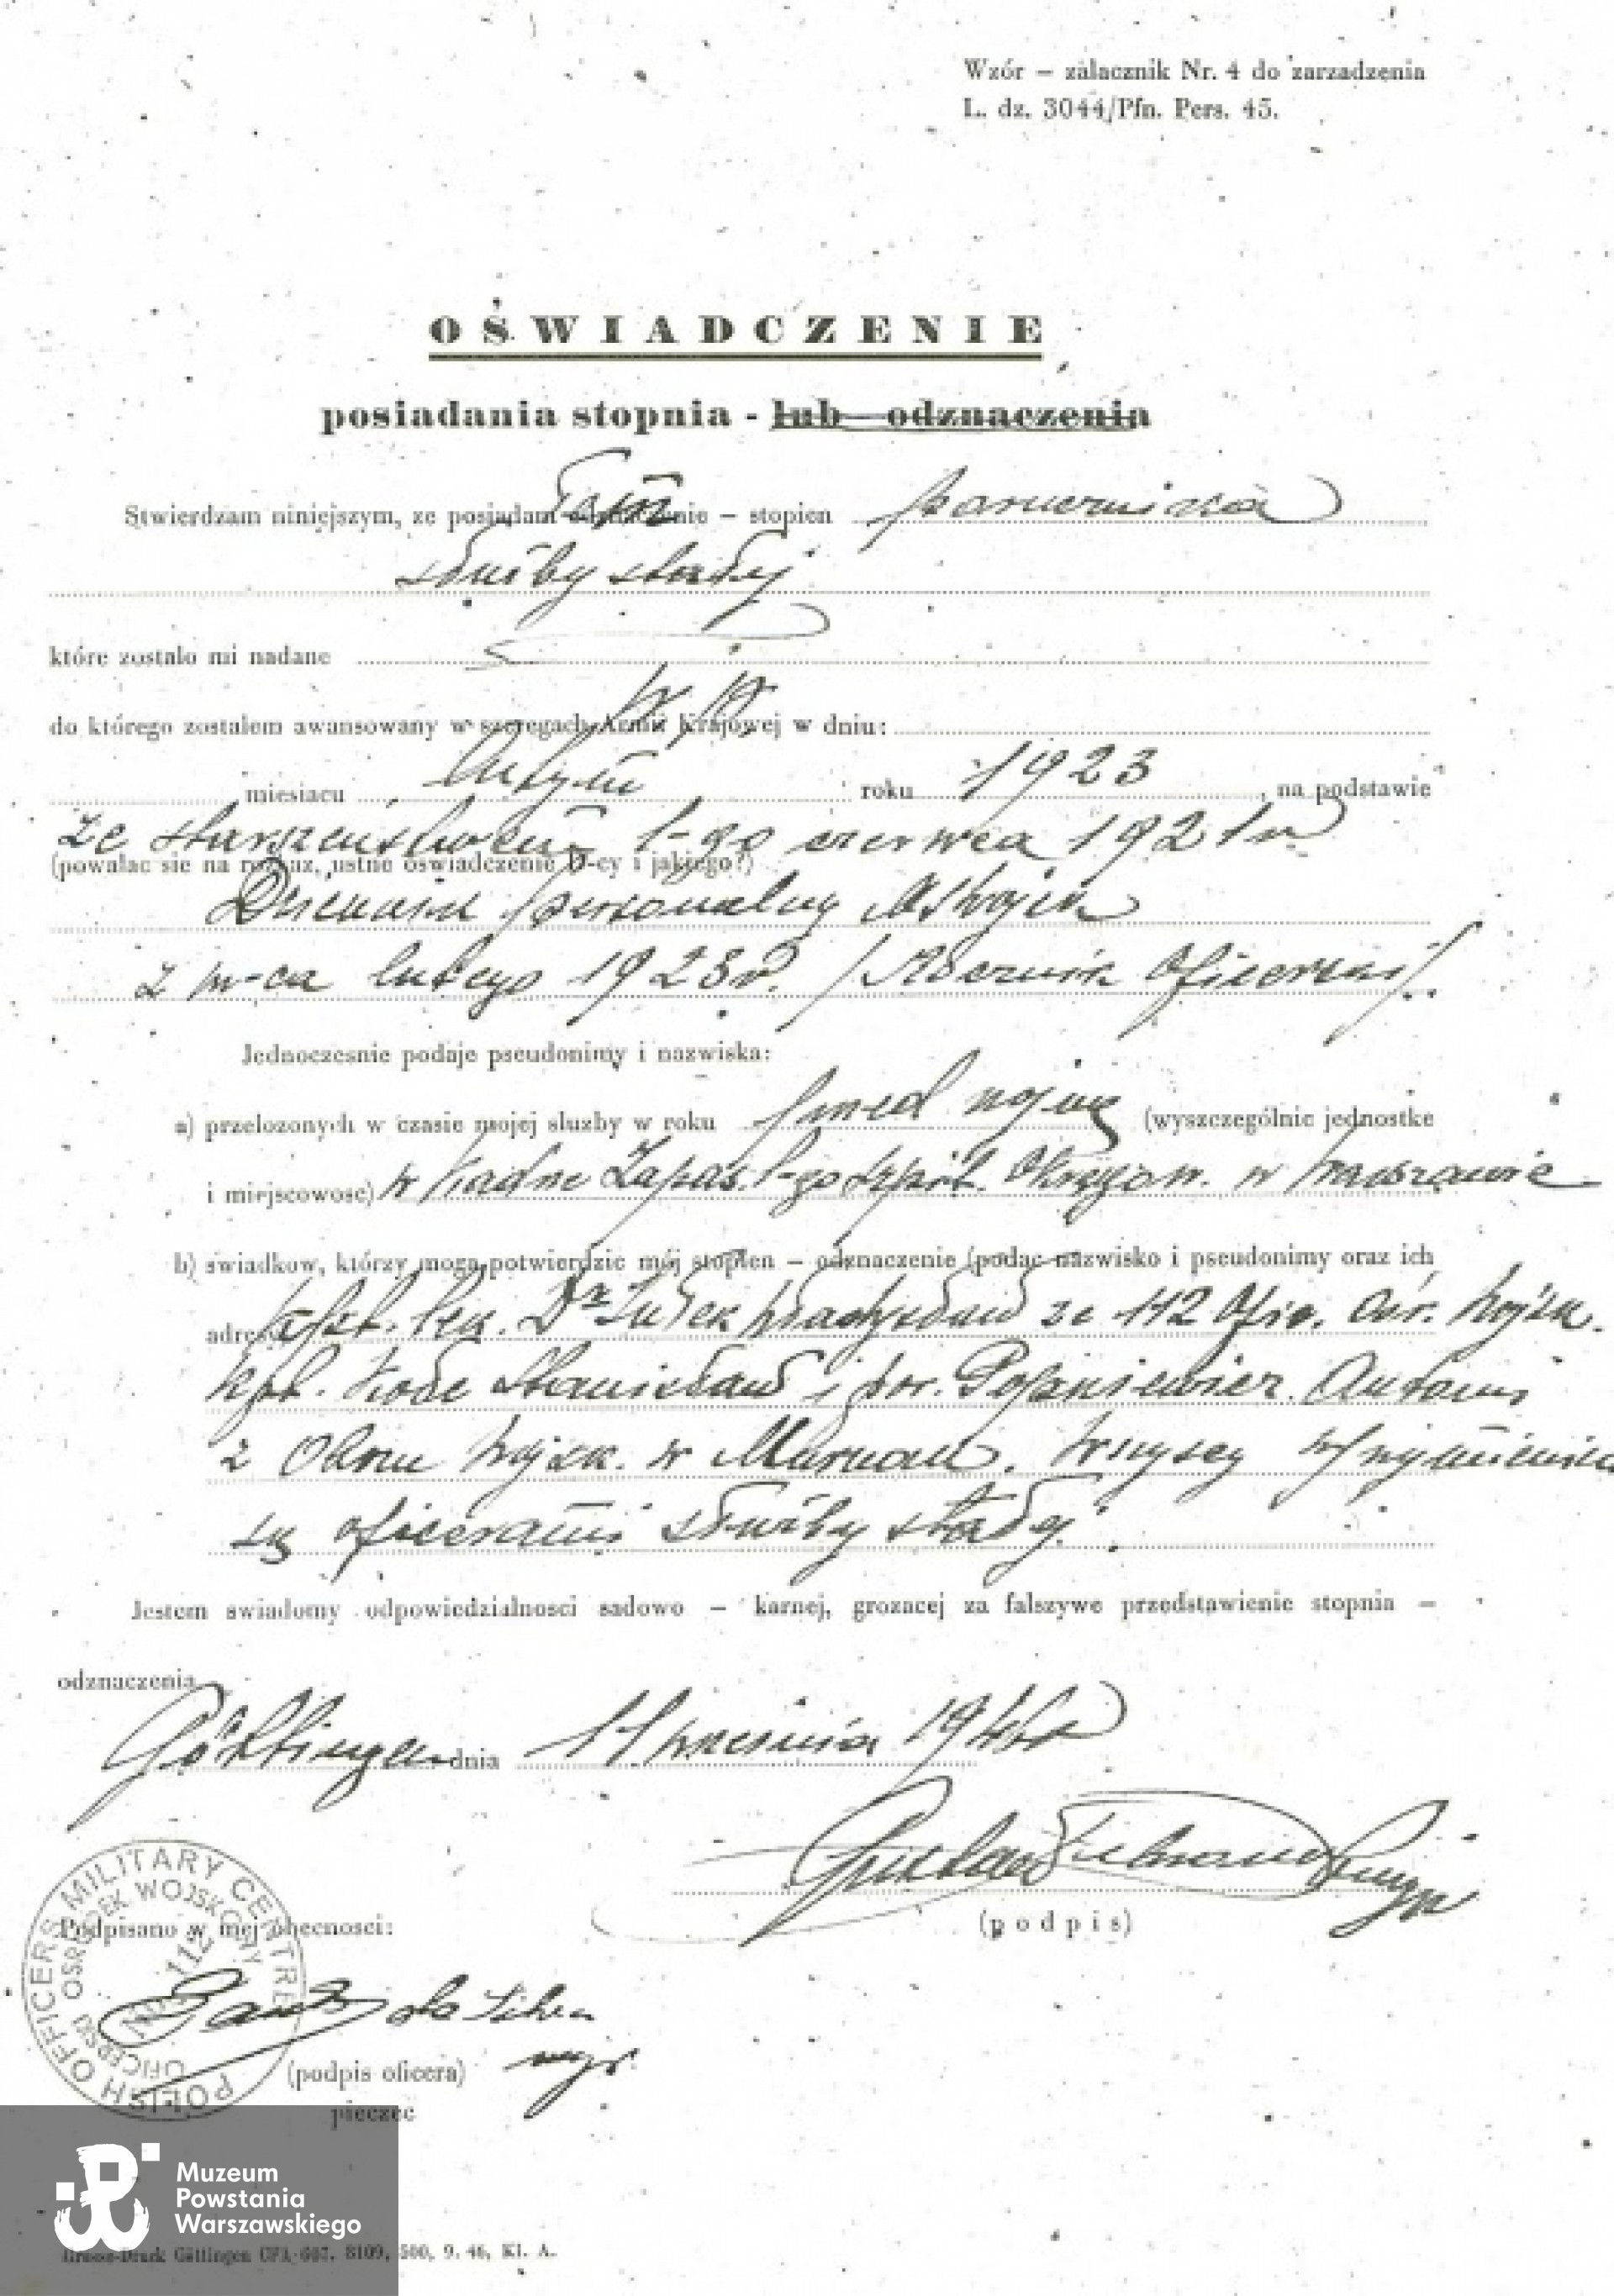 Wzór – zalacznik Nr. 4 do zarzadzenia
L. dz. 3044/Pfn. Pers. 45.
OŚWIADCZENIE
posiadania stopnia - lub odznaczenia
Stwierdzam niniejszym, ze posiadam odznaczenie – stopien
służby stałej
które zostalo mi nadane
do którego zostalem awansowany w szeregach Armii Krajowej w dniu:
miesiacu lutym roku 1923, na podstawie
ze starszeństwem 1-go czerwca 1921 r
(powolac sie na rozkaz, ustne oswiadczenie D-cy i jakiego?)
Dziennik personalny M S Wojsk
z m-ca lutego 1923 r. / Rocznik Oficerski /.
Jednoczesnie podaje pseudonimy i nazwiska:
a) przelozonych w czasie mojej sluzby w roku przed wojną (wyszczególnic jednostke
i miejscowosc) w Kadrze Zapas. 1-go Szpit. Okręgow. w Warszawie
b) swiadkow, którzy moga potwierdzic mój stopien – odznaczenie (podac nazwisko i pseudonimy oraz ich
adresy) Dr Władysław ze 112 Ofic. Ośr. Wojsk.
kpt. Stanisław i por. Antoni
z Obozu Wojsk. w Murnau. Wszyscy wymienieni
są oficerami służby stałej.
Jestem swiadomy odpowiedzialnosci sadowo – karnej, grozacej za falszywe przedstawienie stopnia –
odznaczenia
Göttingen dnia 11 września 194
(podpis)
Podpisano w mej obecnosci:
POLISH OFFICERS MILITARY CENTRE
OFICERSKI OSRODEK WOJSKOWY
No. 112
mjr.
(podpis oficera)
pieczec
Muzeum
Powstania
Warszawskiego
Göttingen CPA 607. 8109, 500, 9. 46, Kl. A.